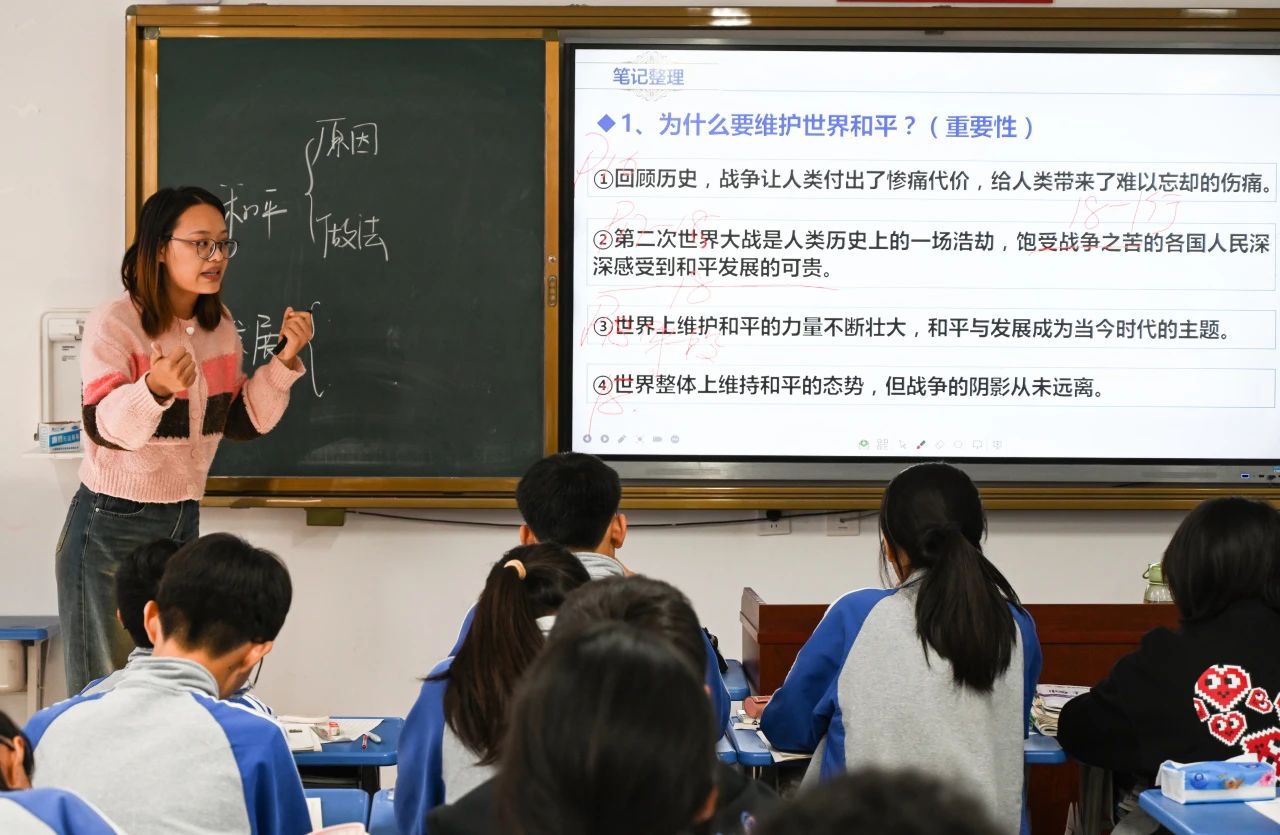 原因
和平
做法
展
笔记整理
◆1、为什么要维护世界和平？（重要性）
①回顾历史，战争让人类付出了惨痛代价，给人类带来了难以忘却的伤痛。
②第二次世界大战是人类历史上的一场浩劫，饱受战争之苦的各国人民深
深感受到和平发展的可贵。
③世界上维护和平的力量不断壮大，和平与发展成为当今时代的主题。
④世界整体上维持和平的态势，但战争的阴影从未远离。